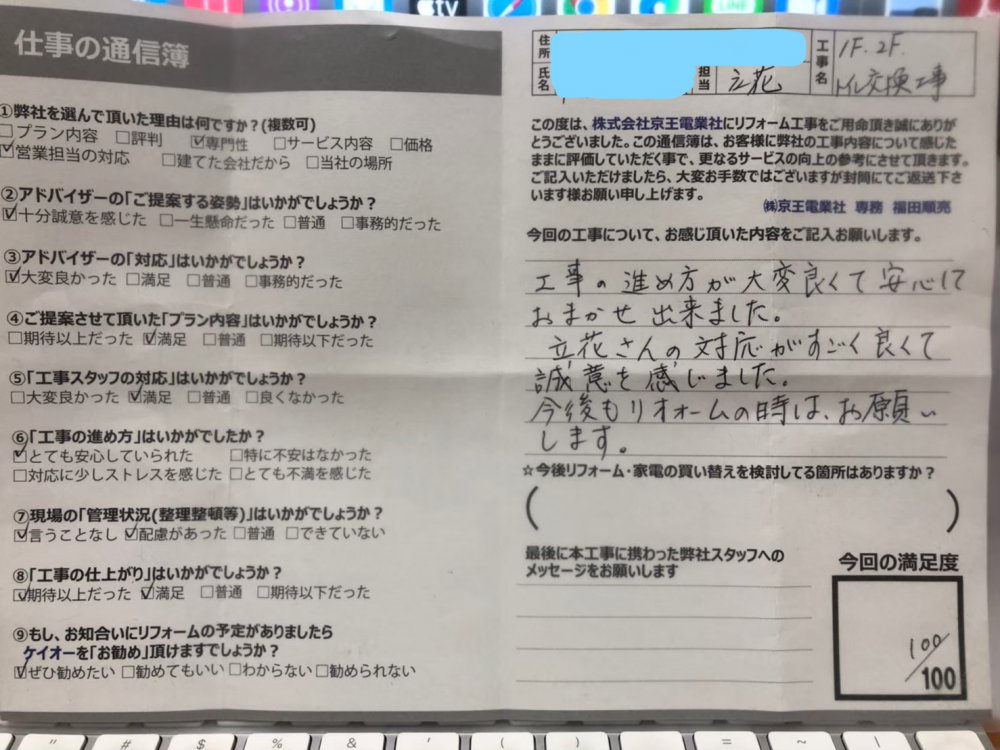 仕事の通信簿
①弊社を選んで頂いた理由は何ですか？(複数可)
□プラン内容 □評判 ☑専門性 □サービス内容 □価格
☑営業担当の対応 □建てた会社だから □当社の場所
②アドバイザーの「ご提案する姿勢」はいかがでしょうか？
☑十分誠意を感じた □一生懸命だった □普通 □事務的だった
③アドバイザーの「対応」はいかがでしょうか？
☑大変良かった □満足 □普通 □事務的だった
④ご提案させて頂いた「プラン内容」はいかがでしょうか？
□期待以上だった ☑満足 □普通 □期待以下だった
⑤「工事スタッフの対応」はいかがでしょうか？
□大変良かった ☑満足 □普通 □良くなかった
⑥「工事の進め方」はいかがでしたか？
☑とても安心していられた □特に不安はなかった
□対応に少しストレスを感じた □とても不満を感じた
⑦現場の「管理状況(整理整頓等)」はいかがでしょうか？
☑言うことなし ☑配慮があった □普通 □できていない
⑧「工事の仕上がり」はいかがでしょうか？
☑期待以上だった ☑満足 □普通 □期待以下だった
⑨もし、お知合いにリフォームの予定がありましたら
ケイオーを「お勧め」頂けますでしょうか？
☑ぜひ勧めたい □勧めてもいい □わからない □勧められない
住所
氏名
担当 立花
工事名 1F.2F.
トイレ交換工事
この度は、株式会社京王電業社にリフォーム工事をご用命頂き誠にありが
とうございました。この通信簿は、お客様に弊社の工事内容について感じた
ままに評価していただく事で、更なるサービスの向上の参考にさせて頂きます。
ご記入いただけましたら、大変お手数ではございますが封筒にてご返送下さ
います様お願い申し上げます。
㈱京王電業社 専務 福田順亮
今回の工事について、お感じ頂いた内容をご記入お願いします。
工事の進め方が大変良くて安心して
おまかせ出来ました。
立花さんの対応がすごく良くて
誠意を感じました。
今後もリオォームの時は、お願い
します。
☆今後リフォーム・家電の買い替えを検討してる箇所はありますか？
( )
最後に本工事に携わった弊社スタッフへの
メッセージをお願いします
今回の満足度
100/100